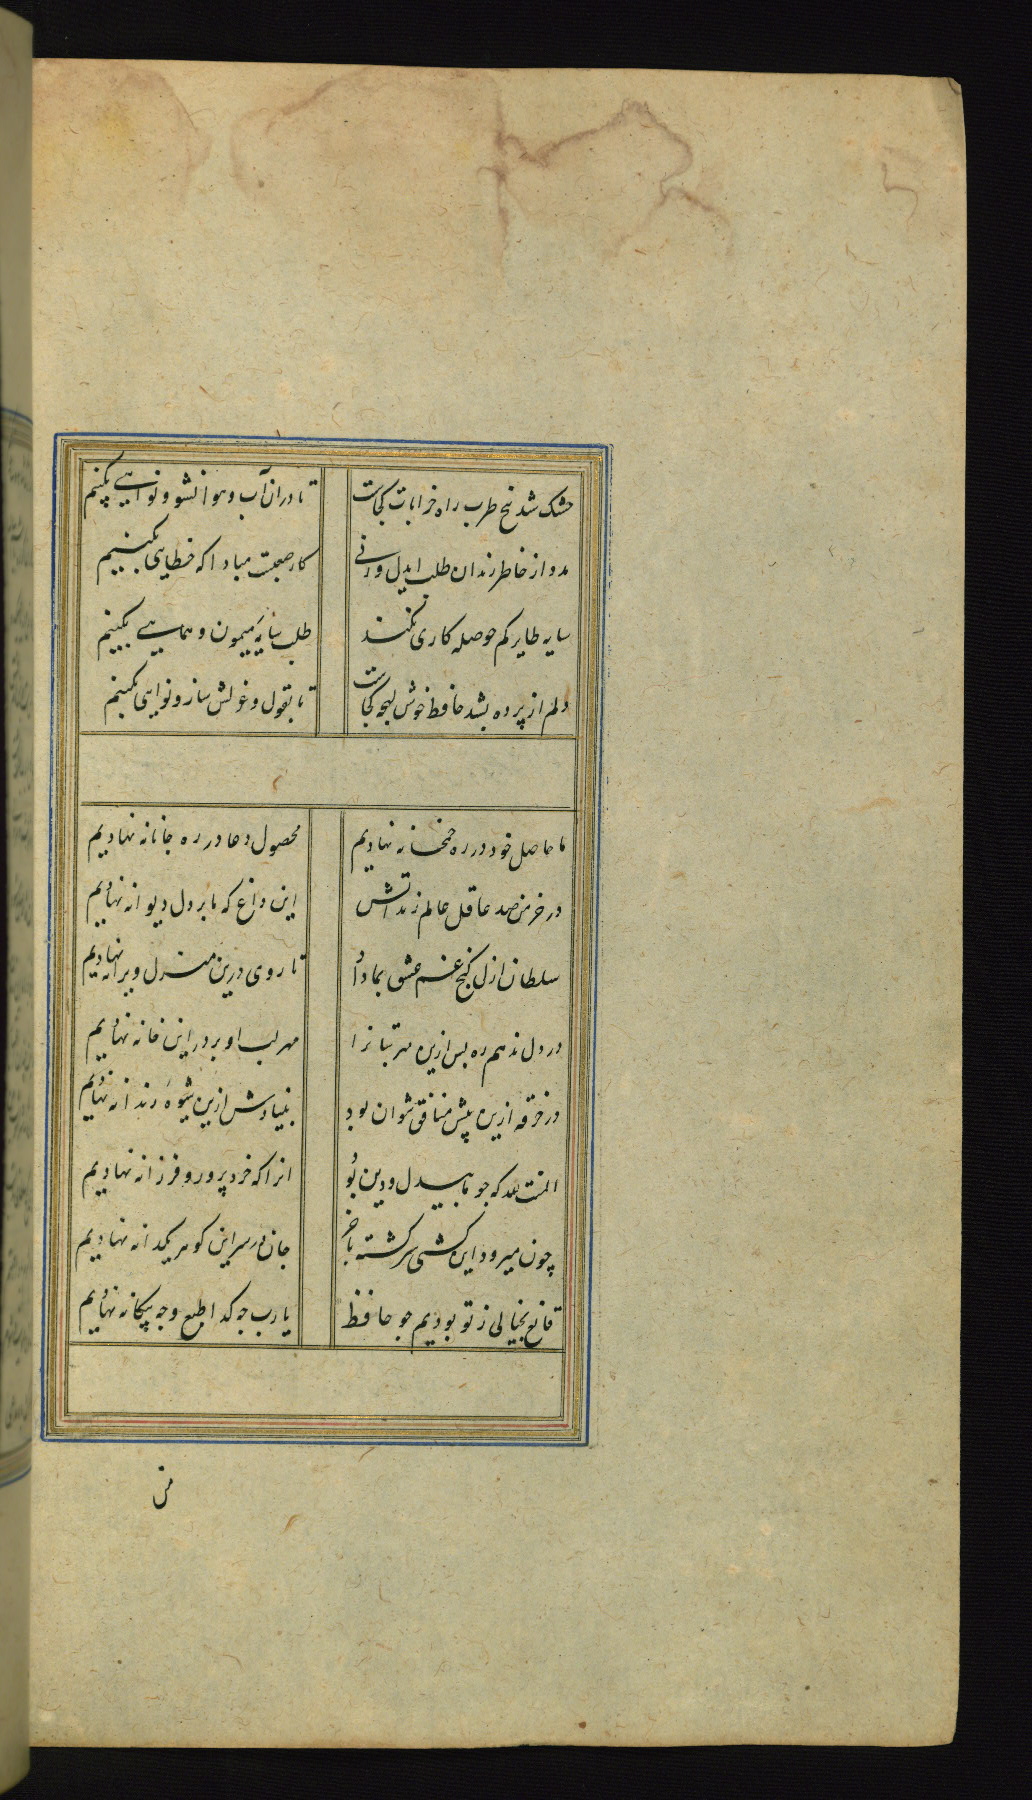 خشک شد بیخ طرب راه خرابات کجاست
تا در ان آب و هوا نشو و نوایی بکنیم
مدد از خاطر رندان طلب ایدل ورنی
کار صعبت مبادا که خطایی بکنیم
سایه طایر کم حوصله کاری نکند
طلب سایه میمون و همایی بکنیم
دلم از پرده بشد حافظ خوش لهجه کجاست
تا بقول و غزلش ساز و نوایی بکنیم
ما حاصل خود در ره خمخانه نهادیم
محصول دعا در ره جانانه نهادیم
در خرمن صد عاقل عالم زند اتش
این داغ که ما بر دل دیوانه نهادیم
سلطان ازل گنج غم عشق بما داد
تا روی درین منزل ویرانه نهادیم
در دل ندهم ره پس ازین مهر بتانرا
مهر لب او بر در این خانه نهادیم
در خرقه ازین بیش منافق نتوان بود
بنیادش ازین شیوه رندانه نهادیم
المنت لله که چو ما بیدل و دین بود
انرا که خرد پرور و فرزانه نهادیم
چون میرود این کشتی سرگشته باخر
جان در سر این گوهر یکدانه نهادیم
قانع بخیالی ز تو بودیم چو حافظ
یا رب چه گدا طبع و چه بیگانه نهادیم
من